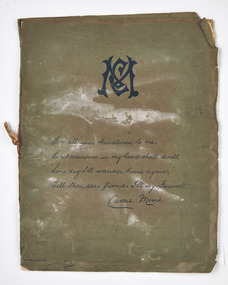 For all your kindness to me,
Sweet memories in my heart shall dwell,
Some day I'll wander home again,
Till then dear friends I'll say farewell.
Carrie Moore